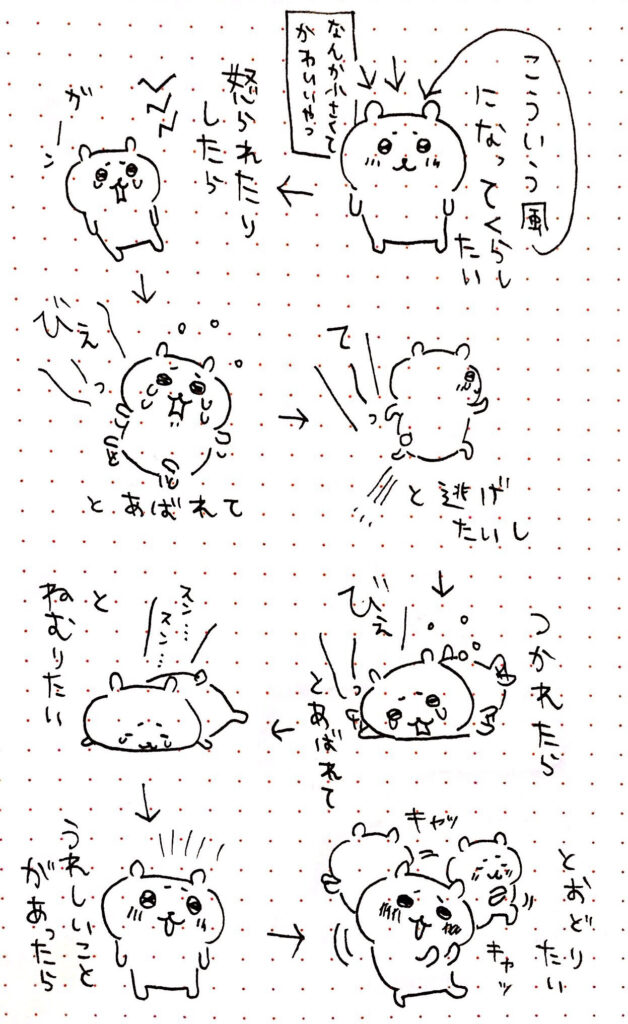 こういう風
になってくらし
たい
なんか小さくて
かわいいやつ
怒られたり
したら
ガーン
びえ
っ
とあばれて
て
っ
と逃げ
たいし
つかれたら
びえ
っ
とあばれて
スン…
スン…
と
ねむりたい
うれしいこと
があったら
キャッ
キャッ
とおどり
たい